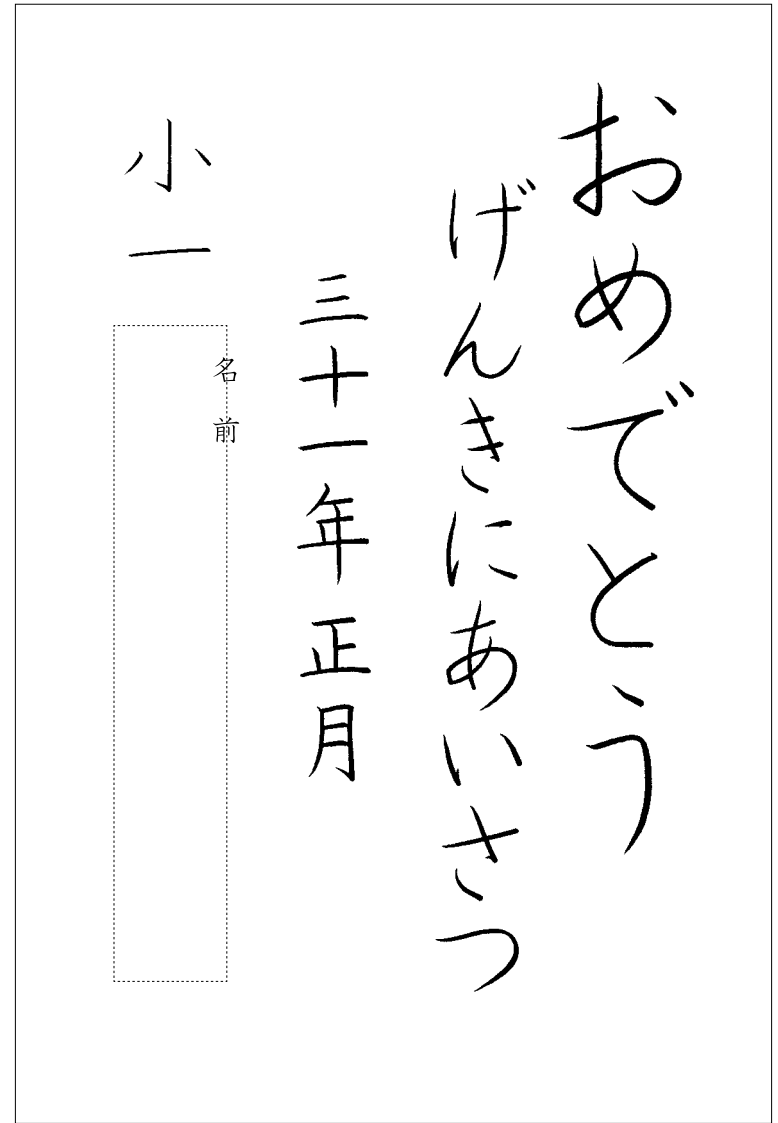 おめでとう
げんきにあいさつ
三十一年正月
小一
名前